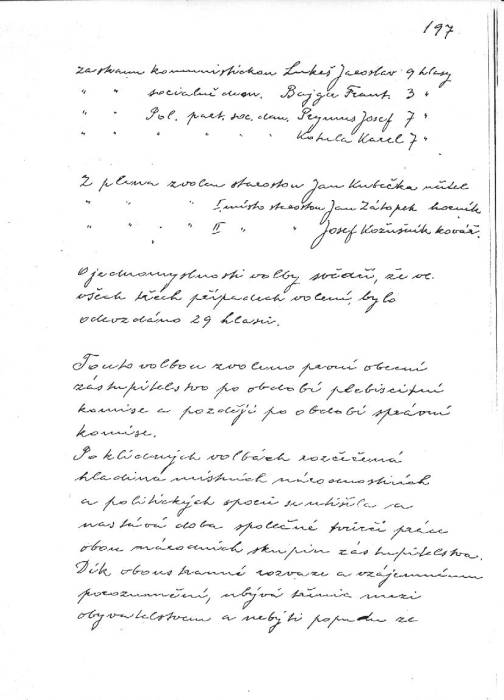 197.
za stranu komunistickou Lukeš Jaroslav 9 hlasy
" " sociálně dem. Bajgar Frant. 3 "
" " Pol. part. soc. dem. Prymus Josef 7 "
" " " " " " Kotula Karel 7 "
Z plena zvolen starostou Jan Kubečka učitel
" " " I místo starostou Jan Zátopek horník
" " " II " " Josef Kožušník kovář.
O jednomyslnosti volby svědčí, že ve
všech třech případech volení, bylo
odevzdáno 29 hlasů.
Touto volbou zvoleno první obecní
zastupitelstvo po období plebiscitní
komise a později po období správní
komise.
Po klidných volbách rozčeřená
hladina místních národnostních
a politických sporů se utišila a
nastává doba společné tvůrčí práce
obou národních skupin zastupitelstva.
Dík oboustranné rozvaze a vzájemnému
porozumění, ubývá třenic mezi
obyvatelstvem a nebýti popudu ze